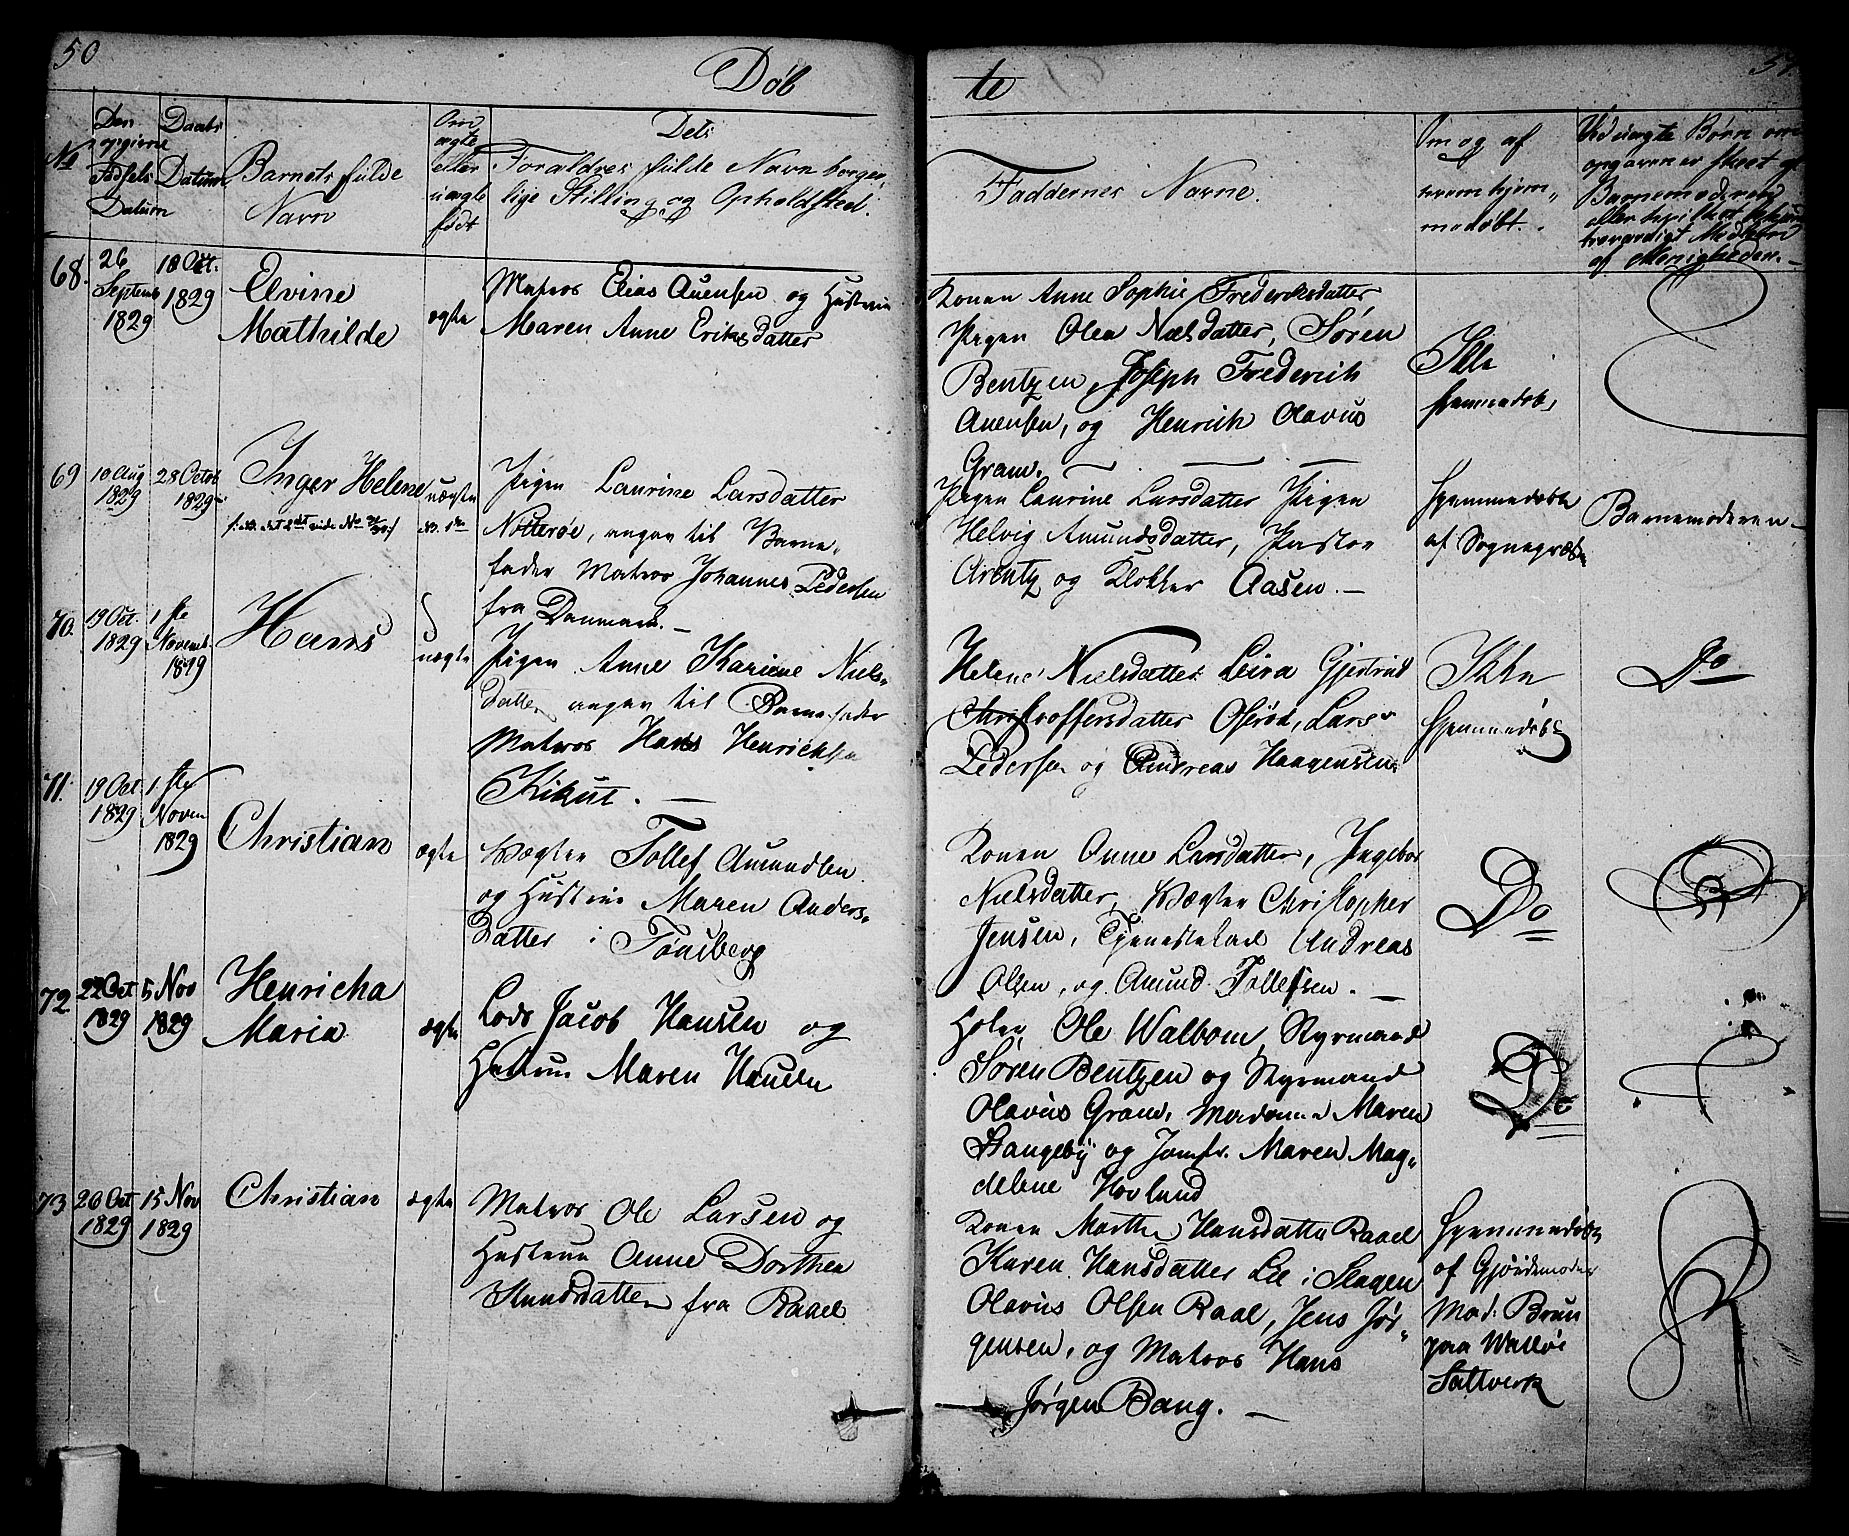 50
Døb
te
No
Den
opgivne
Fødsels
Datum
Daabs
Datum
Barnets fulde
Navn
Om
ægte
eller
uægte
født
Dets
Forældres fulde Navn borger,,
lige Stilling og Opholdsted.
Faddernes Navne.
Om og af
hvem hjem,,
medøbt.
Ved uægte Børn om
opgaven er skeet af
Barnemoderen
eller
troværdigt Medlem
af Menigheden.
68.
26
Septemb
1829
18 Oct.
1829
Elvine
Mathilde
ægte
Matros Elias Auensen og Hustrue
Maren Anne Eriksdatter
Konen Anne Sophie Frederiksdatter
Pigen Olea Nielsdatter, Søren
Bentzen, Joseph Frederich
Auensen, og Henrich Olavus
Gram.
Ikke
hjemmedøb,
69
10 Aug
1829
28 Octob
1829
Inger Helene
uægte
Pigen Laurine Larsdatter
Nøtterøe, angav til Barne,,
fader Matros Johannes Pedersen
fra Danmark.
Pigen Laurine Larsdatter Pigen
Helvig Amundsdatter, Pastor
Arentz og Klokker Aasen. —
Hjemmedøbt
af Sognepræst
Barnemoderen —
70.
19 Oct.
1829
1ste
Novemb.
1829
Hans
uægte
Pigen Anne Karine Niels,,
datter angav til Barnefader
Matros Hans Henricksen
Kikut. —
Helene Nielsdatter Leira Gjertrud
Christoffersdatter Oserød, Lars
Pedersen og Andreas Haagensen
Ikke
hjemmedøbt
Do
71.
19 Oct.
1829
1ste
Novem
1829
Christian
ægte
Vægter Tollef Amundsen
og Hustrue Maren Anders,,
datter i Tønsberg
Konen Anne Larsdatter, Ingebor
Nielsdatter, Vægter Christopher
Jensen, Tjenestekarl Andreas
Olsen, og Amund Tollefsen. —
Do
72
22 Oct
1829
5 Nov
1829
Henricha
Maria
ægte
Lods Jacob Hansen og
Hustrue Maren Hansen
Ole Walbom, Styrmand
Søren Bentzen og Styrmand
Olavus Gram, Madame Maren
Stangeby og Jomfr. Maren Mag,,
delene Hovland
Do
73
26 Oct
1829
15 Nov
1829
Christian
ægte
Matros Ole Larsen og
Hustrue Anne Dorthea
Knudsdatter fra Raael
Konen Marthe Hansdatter Raael
Karen Hansdatter Lie i Slagen
Olavus Olsen Raael, Jens Jør,,
gensen, og Matros Hans
Jørgen Bang. —
Hjemmedøbt
af Gjordemoder
Mad: Bruun
paa Walløe
Saltverk